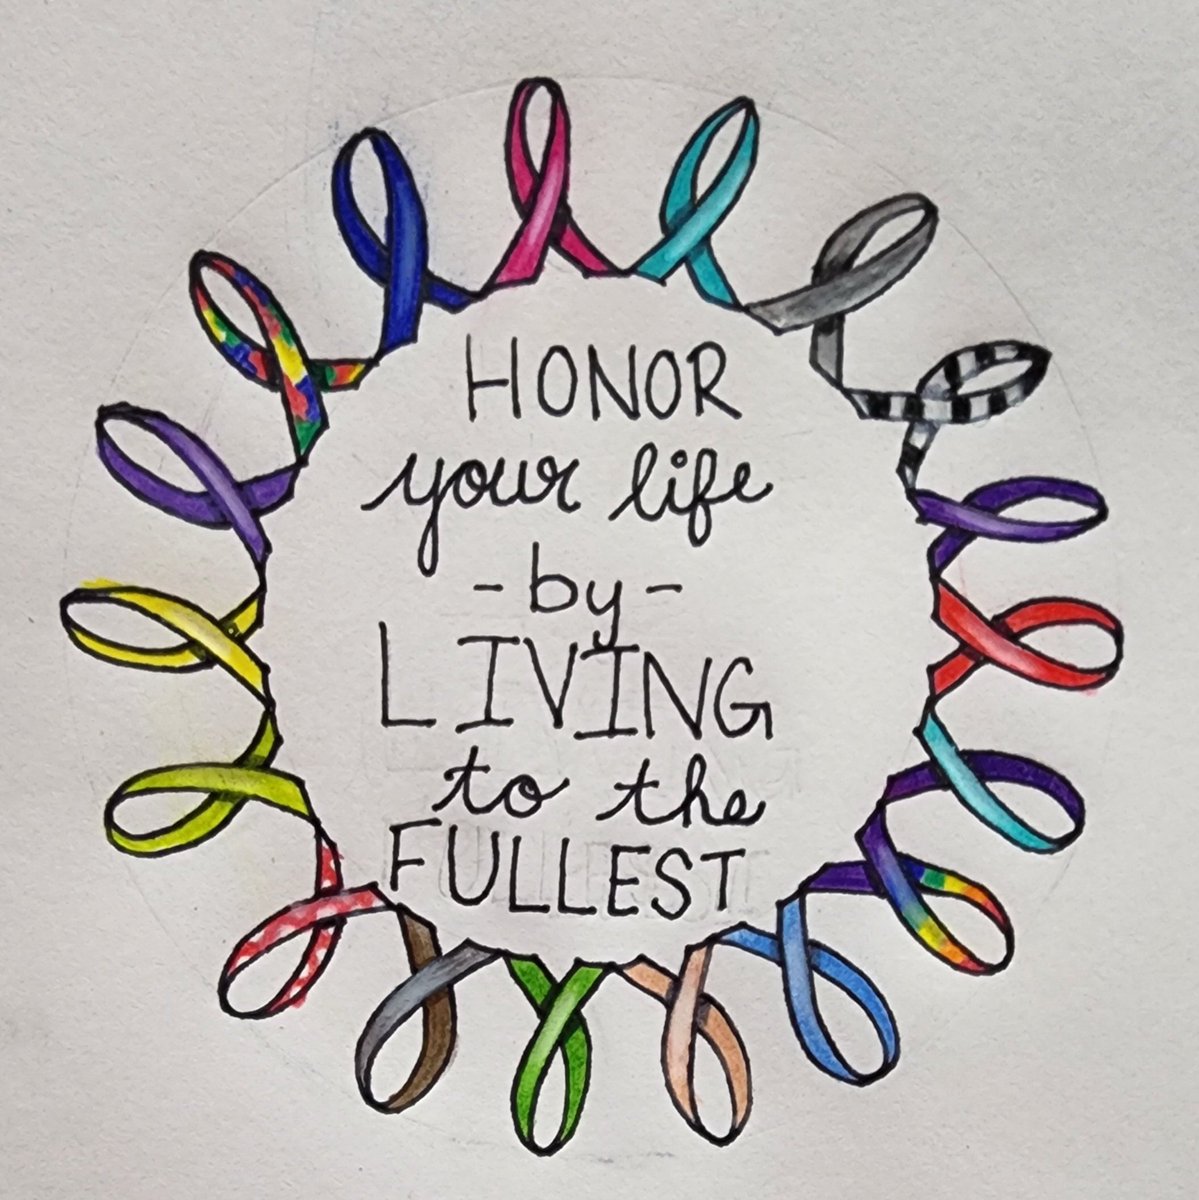 HONOR
your life
-by-
LIVING
to the
FULLEST